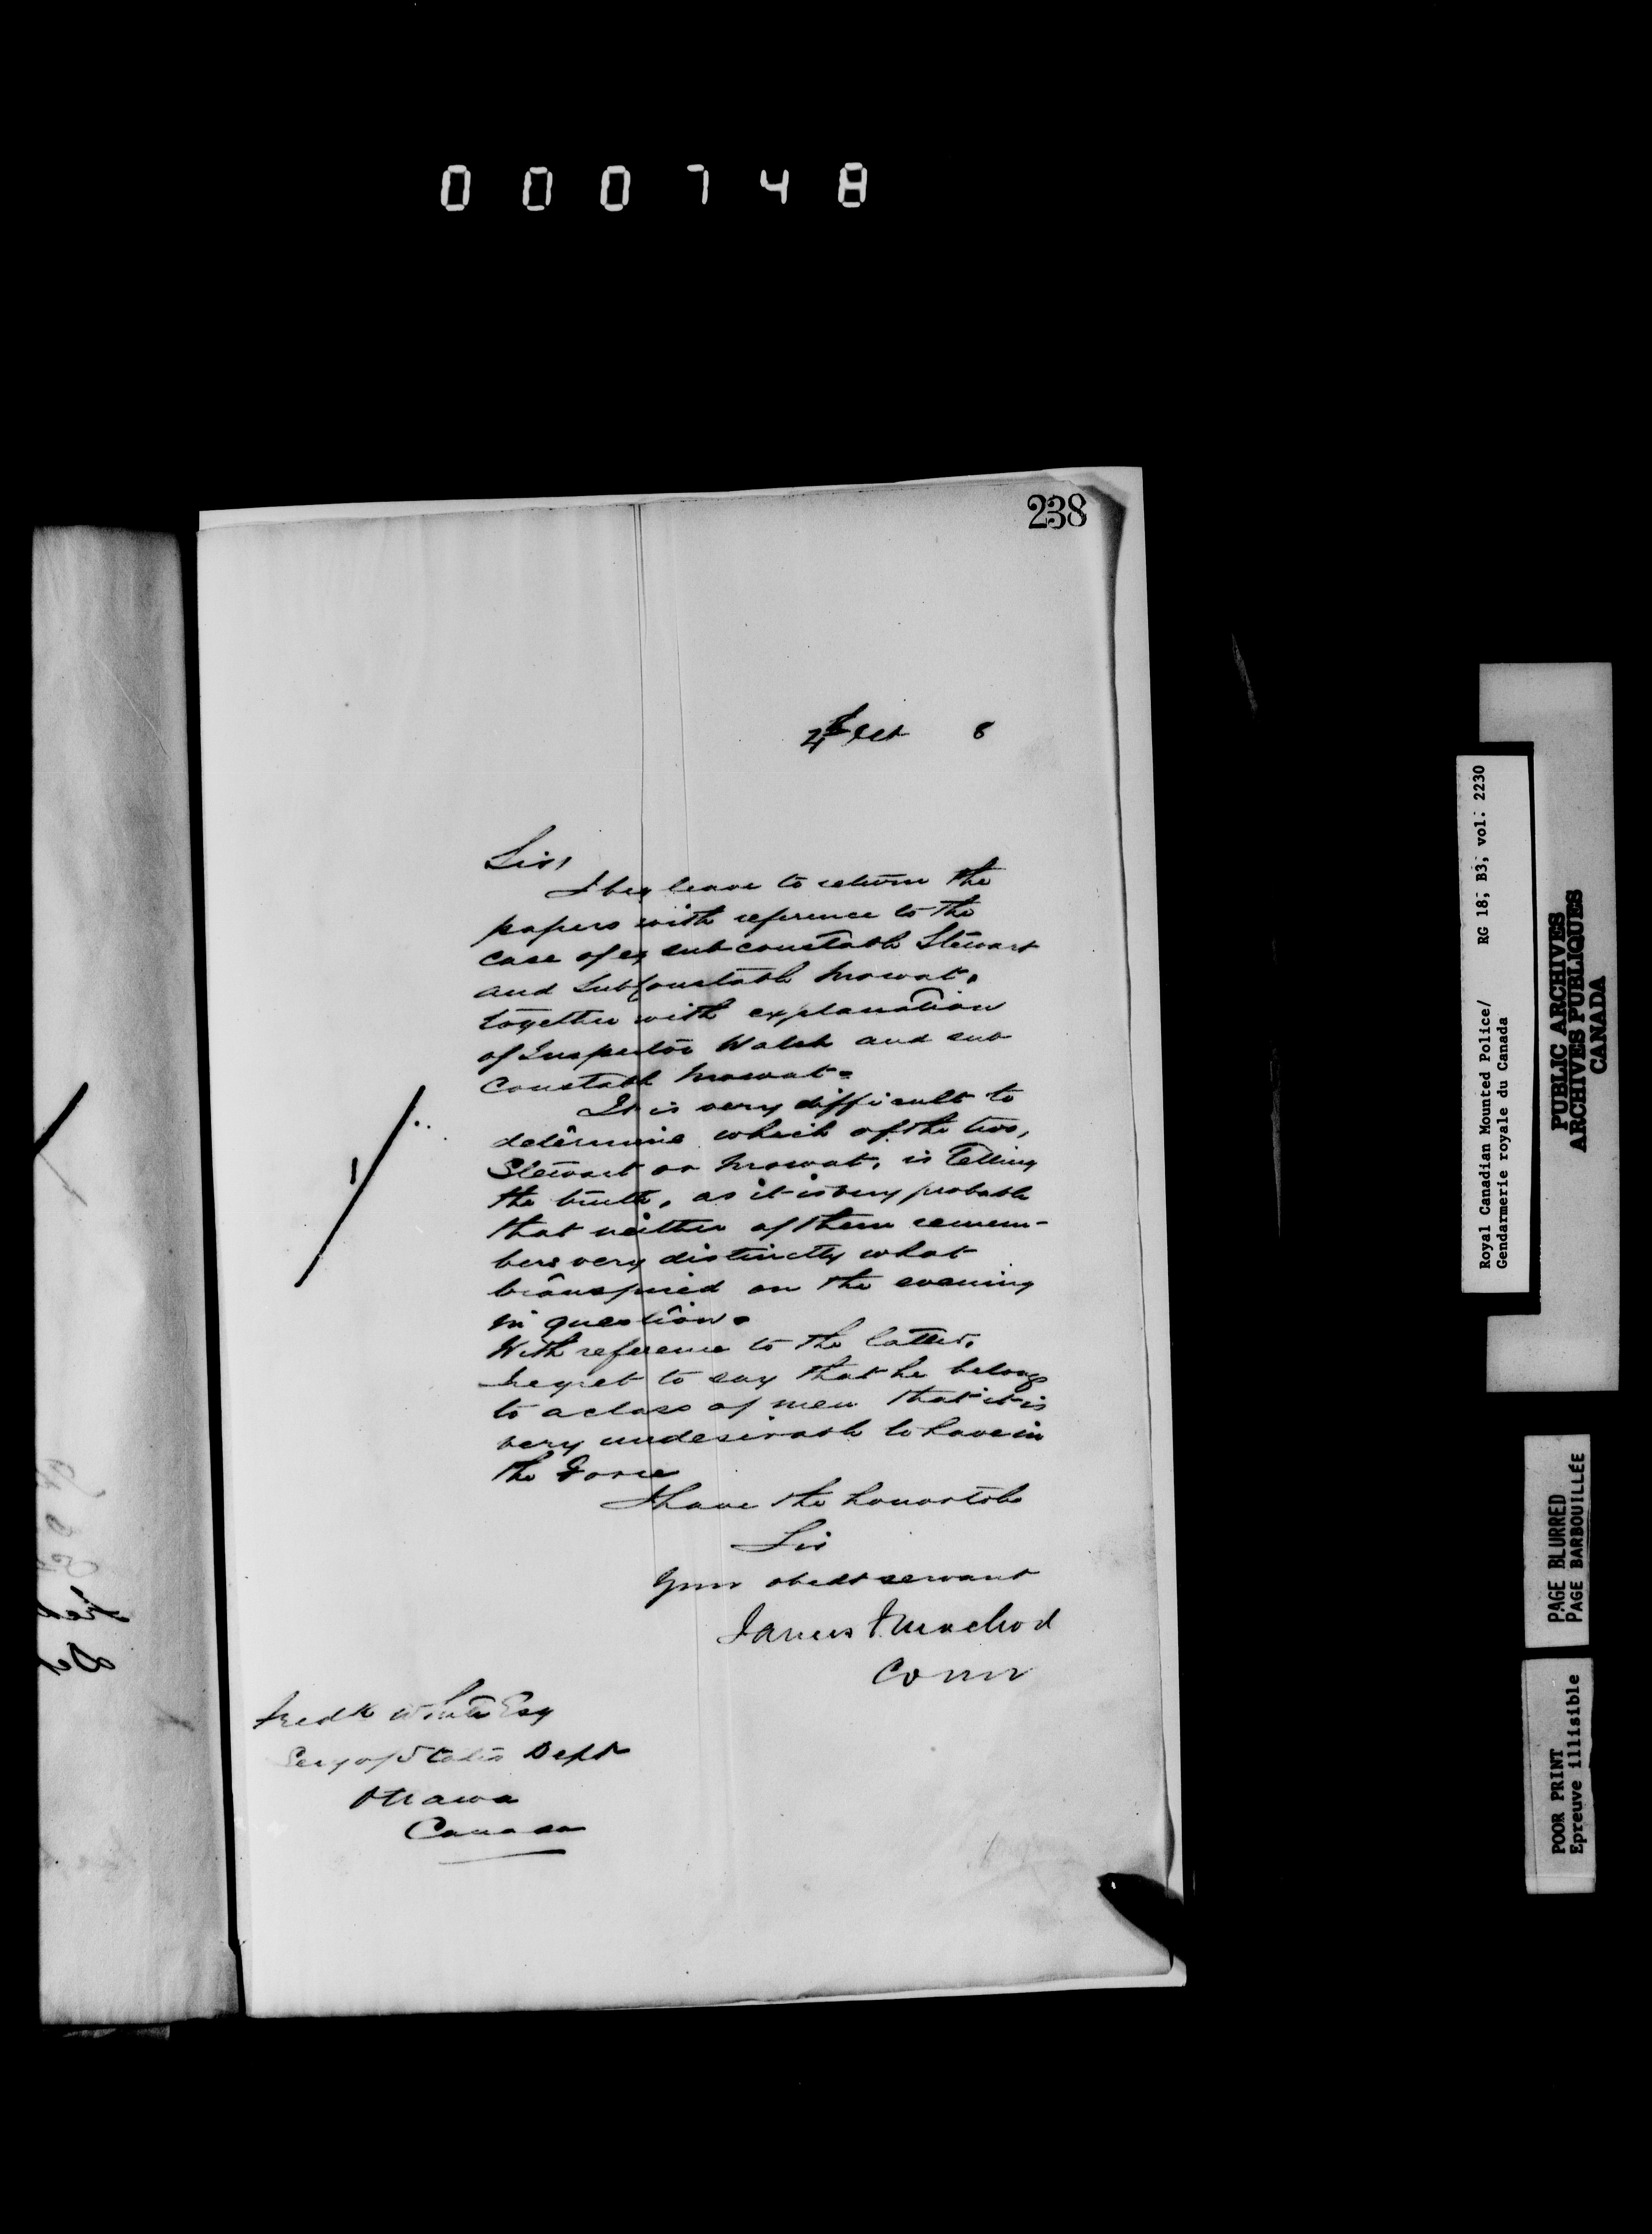 000748
238
4th Oct 8
Sir,
I beg leave to return the
papers with reference to the
case of ex sub constable Stewart
and Sub Constable Mowat,
together with explanation
of Inspector Walsh and sub
Constable Mowat.
It is very difficult to
determine which of the two,
Stewart or Mowat, is telling
the truth, as it is very probable
that neither of them remem-
bers very distinctly what
transpired on the evening
in question.
With reference to the latter,
I regret to say that he belongs
to a class of men that it is
very undesirable to have in
the Force
I have the honor to be
Sir
Your obedt servant
James F. Macleod
Comr
Fredk White Esq
Secy of State's Dept
Ottawa
Canada
Royal Canadian Mounted Police/ RG 18; B3; vol. 2230
Gendarmerie royale du Canada
PUBLIC ARCHIVES
ARCHIVES PUBLIQUES
CANADA
PAGE BLURRED
PAGE BARBOUILLÉE
POOR PRINT
Epreuve illisible